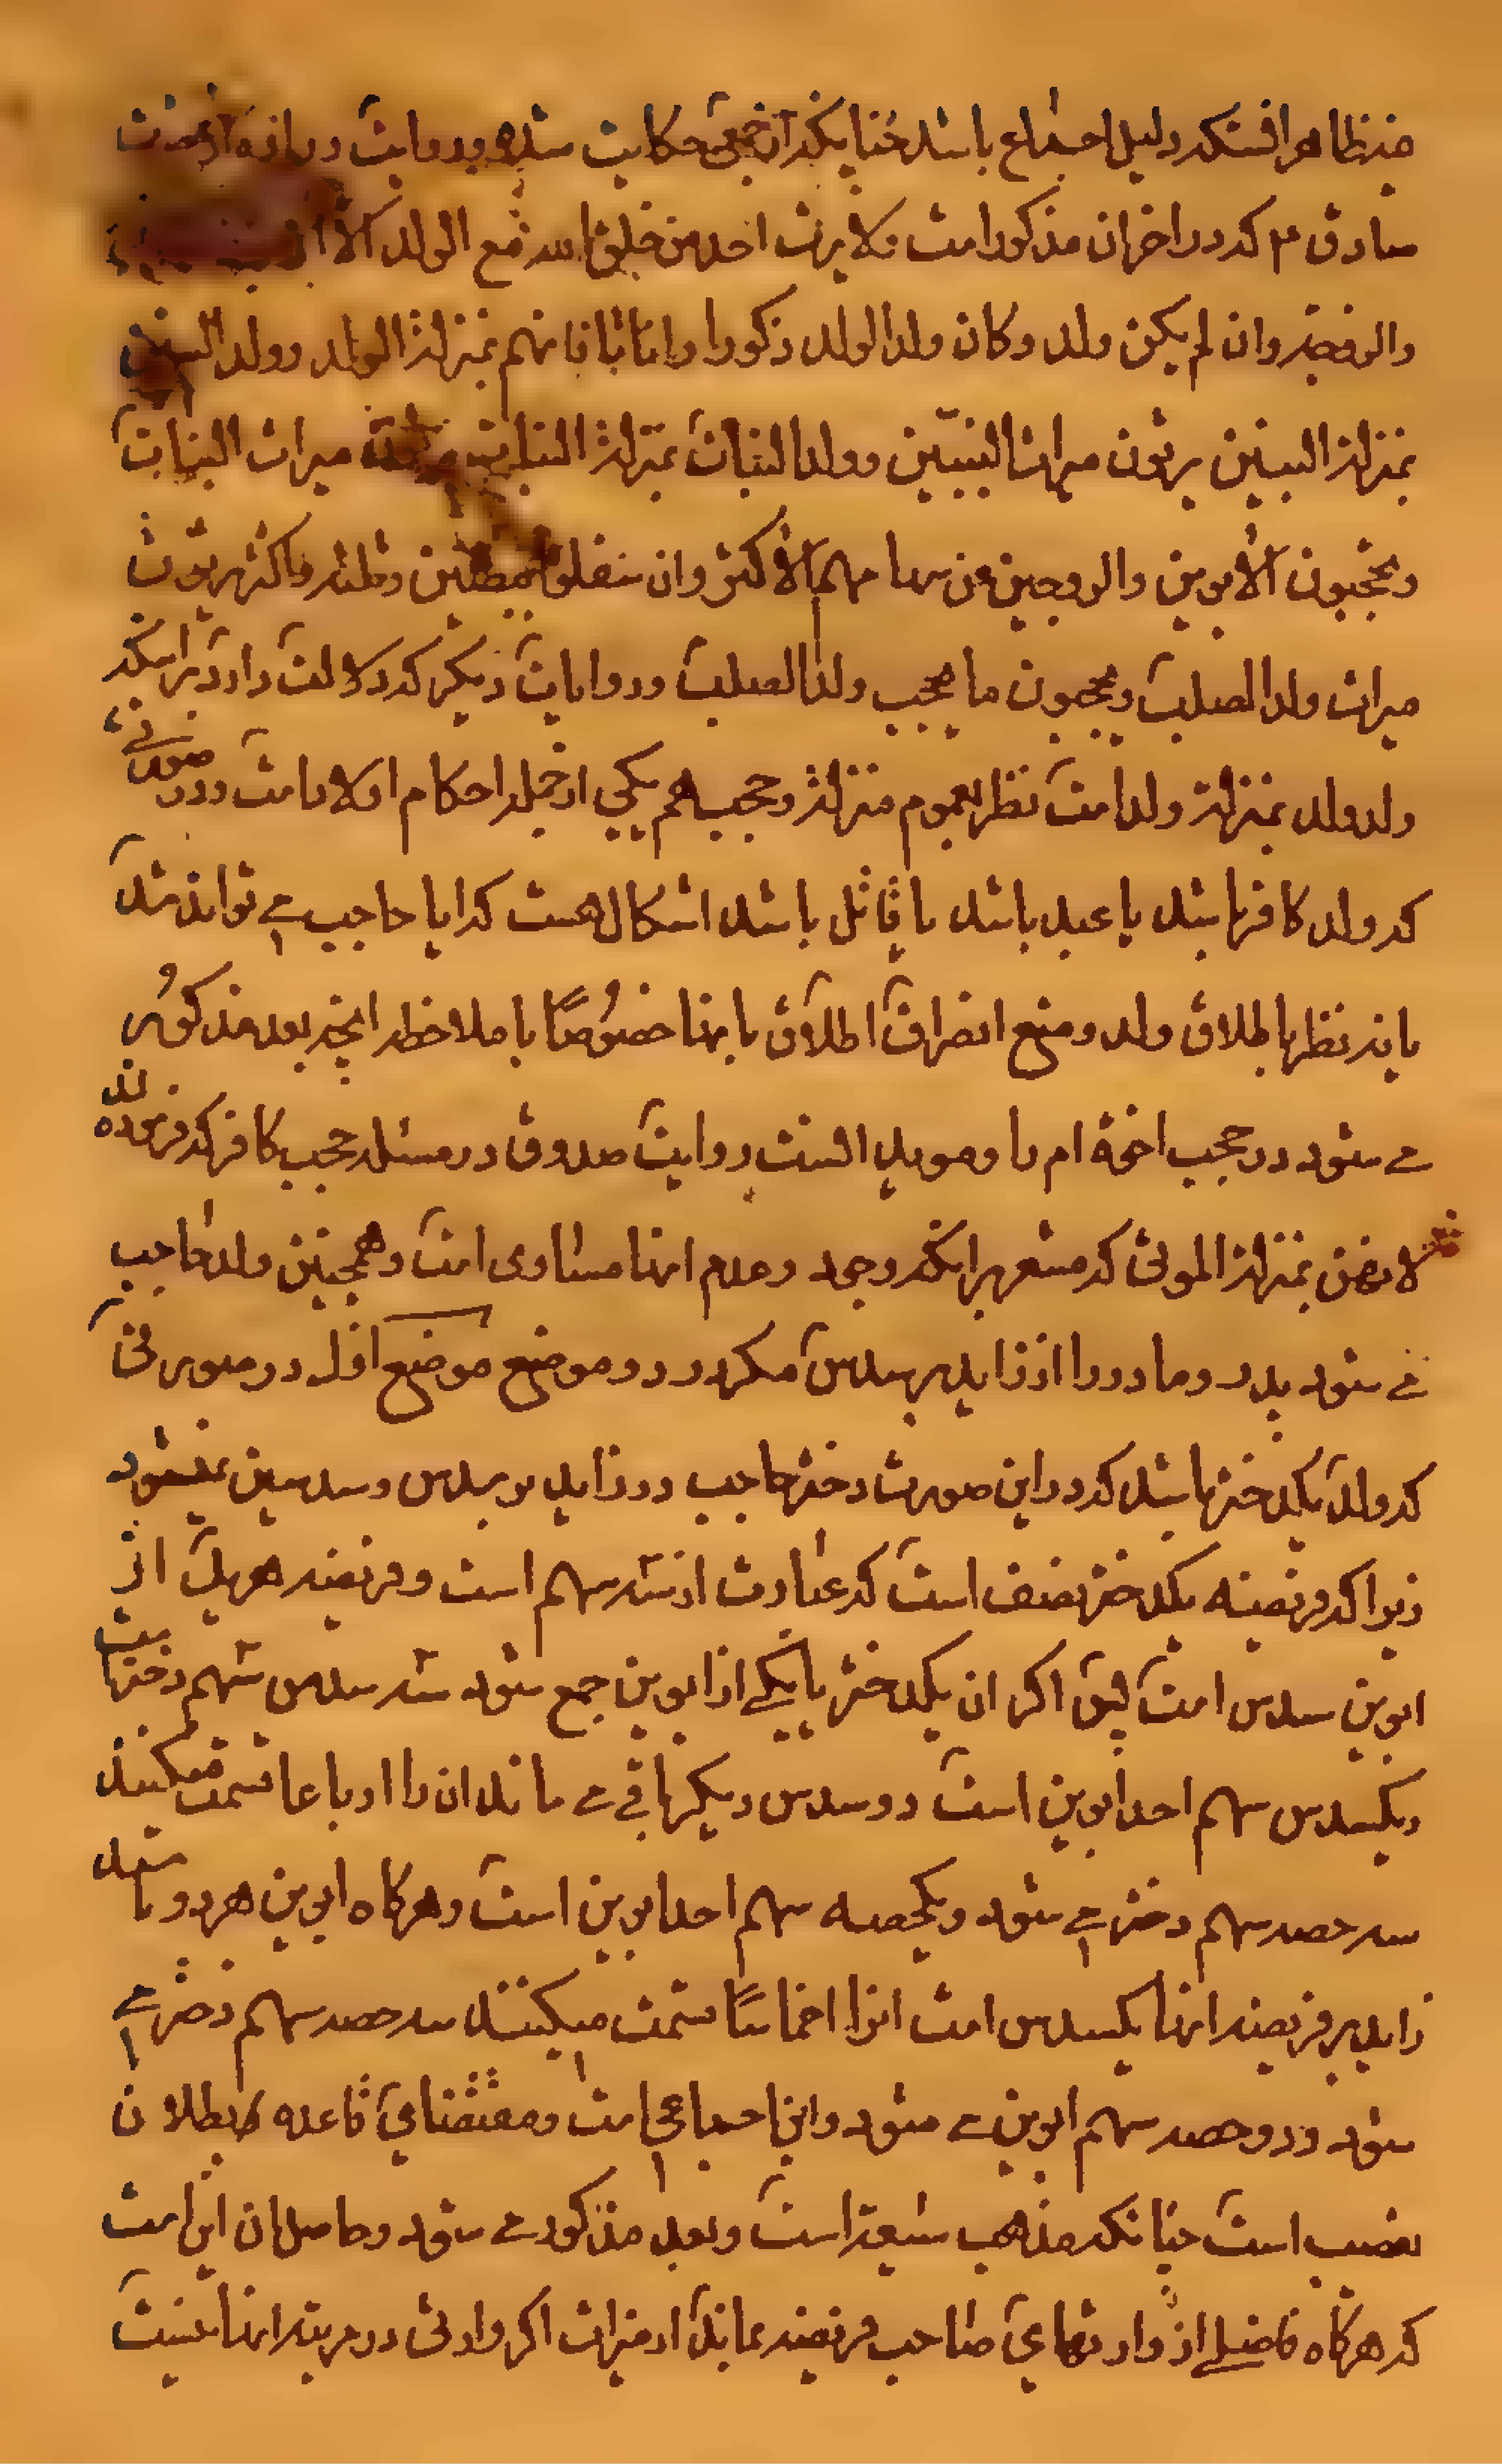 ظاهر دلیل اجماع باشد چنانکه از جمعی حکایت شده و روایت زراره از حضرت
صادق ع که در اخر ان مذکور است ولا یرث احد من خلق الله مع الولد الا الابوین
والزوجة وان لم یکن ولد وکان ولد الولد ذکورا واناثا فانهم بمنزلة الولد وولد البنین
بمنزلة البنین یرثون میراث البنین وولد البنات بمنزلة البنات یرثون میراث البنات
ویحجبون الابوین والزوجین عن سهامهم الاکثر وان سفلوا ببطنین وثلثة واکثر یرثون
میراث ولد الصلب ویحجبون ما یحجب ولد الصلب وروایات دیگر که دلالت دارد براینکه
ولد ولد بمنزلة ولد است نظر بعموم منزلة وحجب هم یکی از جمله احکام اولاد است ودر صورتی
که ولد کافر باشد یا عبد باشد یا قاتل باشد اشکال هست که ایا حاجب می تواند شد
یا نه نظر باطلاق ولد ومنع انصراف اطلاق باینها خصوصًا با ملاحظه انچه بعد مذکور
می شود در حجب اخوة ام را ومؤید انست روایت صدوق در مسئله حجب کافر که فرموده اند
بمنزلة الموتی که مشعر براینکه وجود وعدم اینها مساوی است وهمچنین ولد حاجب
می شود پدر ومادر را از زاید بر سدس مگر در دو موضع موضع اول در صورتی
که ولد یکدختر باشد که در این صورت دختر حاجب در زاید بر سدس وسدسین نمیشود
زیرا که فریضه یکدختر نصف است که عبارت از سه سهم است وفریضه هریک از
ابوین سدس است پس اگر ان یکدختر با یکی از ابوین جمع شود سه سدس سهم دختر است
ویکسدس سهم احد ابوین است دو سدس دیگر باقی می ماند ان را ارباعا قسمت میکنند
سه حصه سهم دختر می شود ویکحصه سهم احد ابوین است وهرگاه ابوین هر دو باشند
زاید بر فریضه اینها یکسدس است انرا اخماسًا قسمت میکنند سه حصه سهم دختر می
شود ودو حصه سهم ابوین می شود واین اجماعی است ومقتضای قاعده بطلان
تعصیب است چنانکه مذهب شیعه است وبعد مذکور می شود وحاصل ان این است
که هرگاه فاضلی از وارثهای صاحب فریضه بماند از میراث اگر وارثی در مرتبه اینها نیست